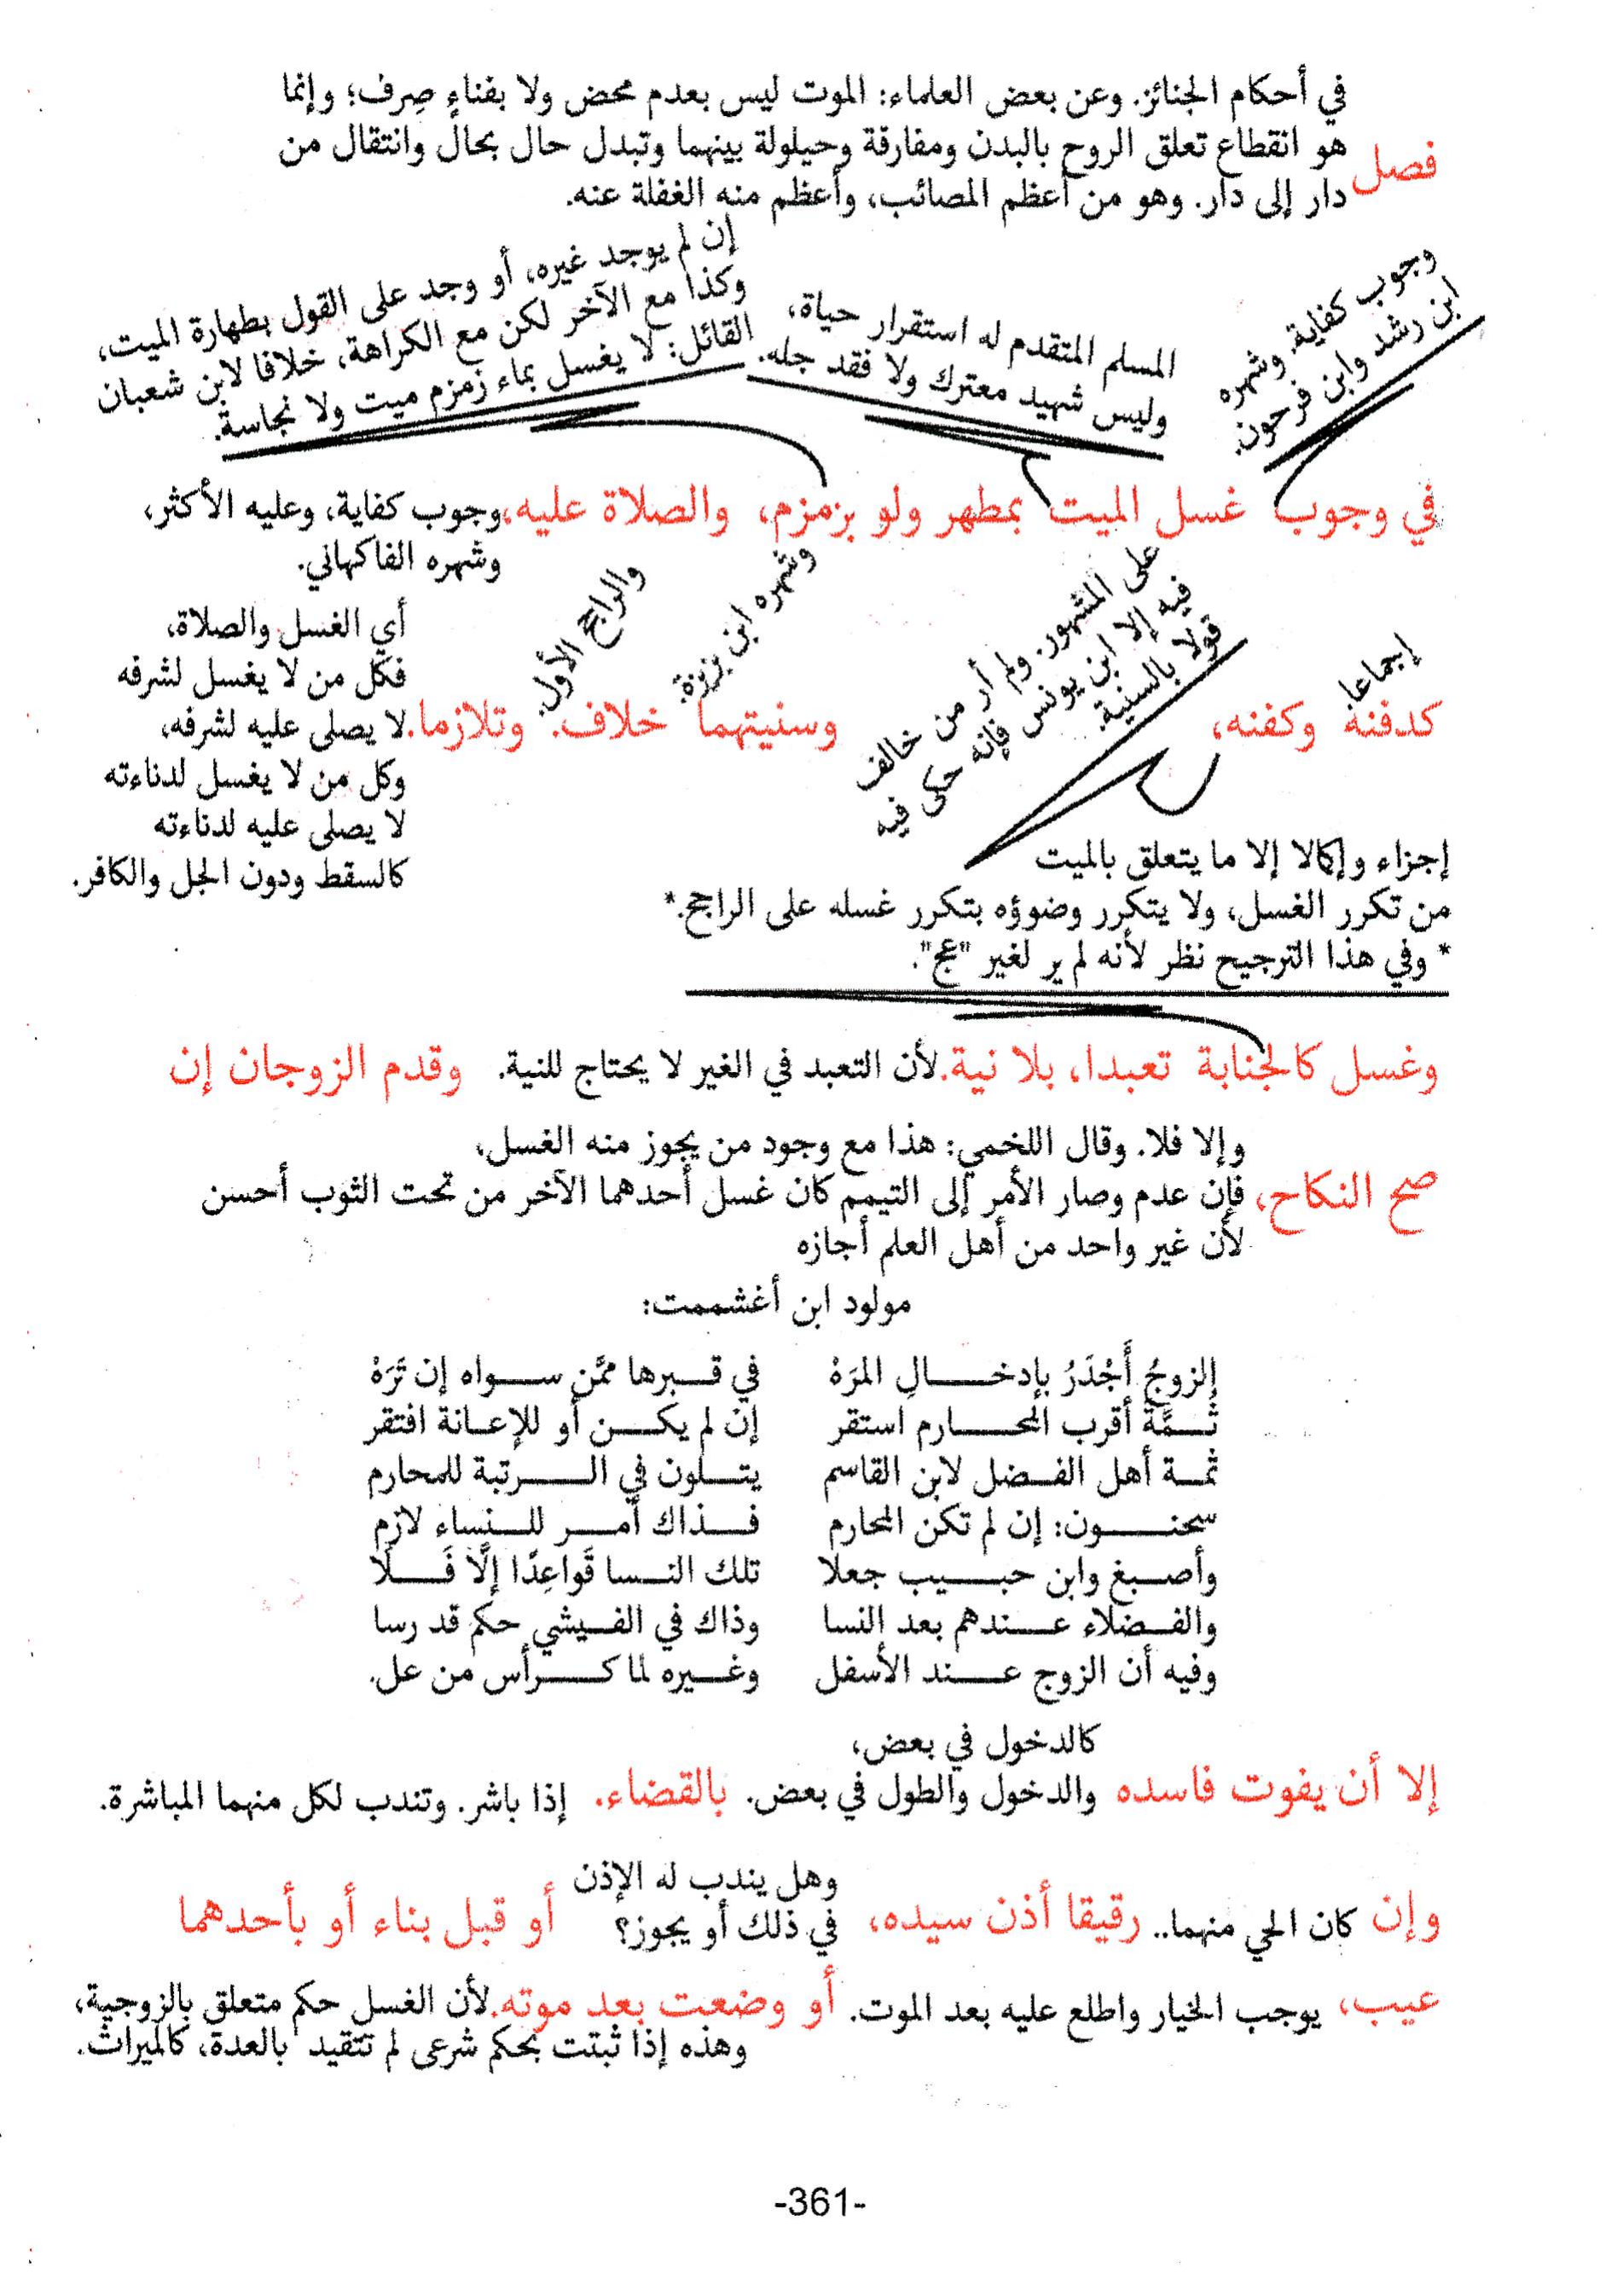 في أحكام الجنائز. وعن بعض العلماء: الموت ليس بعدم محض ولا بفناءٍ صِرف؛ وإنما
فصل هو انقطاع تعلق الروح بالبدن ومفارقة وحيلولة بينهما وتبدل حال بحال وانتقال من
دار إلى دار. وهو من أعظم المصائب، وأعظم منه الغفلة عنه.
وجوب كفاية. وشهره
ابن رشد وابن فرحون.
المسلم المتقدم له استقرار حياة،
وليس شهيد معترك ولا فقد جله.
إن لم يوجد غيره، أو وجد على القول بطهارة الميت،
وكذا مع الآخر لكن مع الكراهة، خلافا لابن شعبان
القائل: لا يغسل بماء زمزم ميت ولا نجاسة.
في وجوب غسل الميت بمطهر ولو بزمزم، والصلاة عليه، وجوب كفاية، وعليه الأكثر،
وشهره الفاكهاني.
إجماعا.
على المشهور. ولم أر من خالف
فيه إلا ابن يونس فإنه حكى فيه
قولا بالسنية.
وشهره ابن بزيزة.
والراجح الأول.
أي الغسل والصلاة،
فكل من لا يغسل لشرفه
كدفنه وكفنه، وسنيتهما خلاف. وتلازما. لا يصلى عليه لشرفه،
وكل من لا يغسل لدناءته
لا يصلى عليه لدناءته
كالسقط ودون الجل والكافر.
إجزاء وإكمالا إلا ما يتعلق بالميت
من تكرر الغسل، ولا يتكرر وضوؤه بتكرر غسله على الراجح.*
* وفي هذا الترجيح نظر لأنه لم ير لغير "عج".
وغسل كالجنابة تعبدا، بلا نية. لأن التعبد في الغير لا يحتاج للنية. وقدم الزوجان إن
وإلا فلا. وقال اللخمي: هذا مع وجود من يجوز منه الغسل،
صح النكاح، فإن عدم وصار الأمر إلى التيمم كان غسل أحدهما الآخر من تحت الثوب أحسن
لأن غير واحد من أهل العلم أجازه
مولود ابن أغشممت:
الزوجُ أَجْدَرُ بإدخـالِ المرَهْ في قـبرها ممَّن سـواه إن تَرَهْ
ثَـمَّةَ أقرب المحـارم استقر إن لم يكـن أو للإعـانة افتقر
ثمـة أهل الفـضل لابن القاسم يتـلون في الـرتبة للمحارم
سحنـون: إن لم تكن المحارم فـذاك أمـر للـنساء لازم
وأصـبغ وابن حبـيب جعلا تلك النـسا قَواعِدًا إلَّا فَـلَا
والفـضلاء عـندهم بعد النسا وذاك في الفـيشي حكم قد رسا
وفيه أن الزوج عـند الأسفل وغـيره لما كـرأس من عل.
كالدخول في بعض،
إلا أن يفوت فاسده والدخول والطول في بعض. بالقضاء. إذا باشر. وتندب لكل منهما المباشرة.
وهل يندب له الإذن
وإن كان الحي منهما.. رقيقا أذن سيده، في ذلك أو يجوز؟ أو قبل بناء أو بأحدهما
عيب، يوجب الخيار واطلع عليه بعد الموت. أو وضعت بعد موته. لأن الغسل حكم متعلق بالزوجية،
وهذه إذا ثبتت بحكم شرعى لم تتقيد بالعدة، كالميراث.
-361-